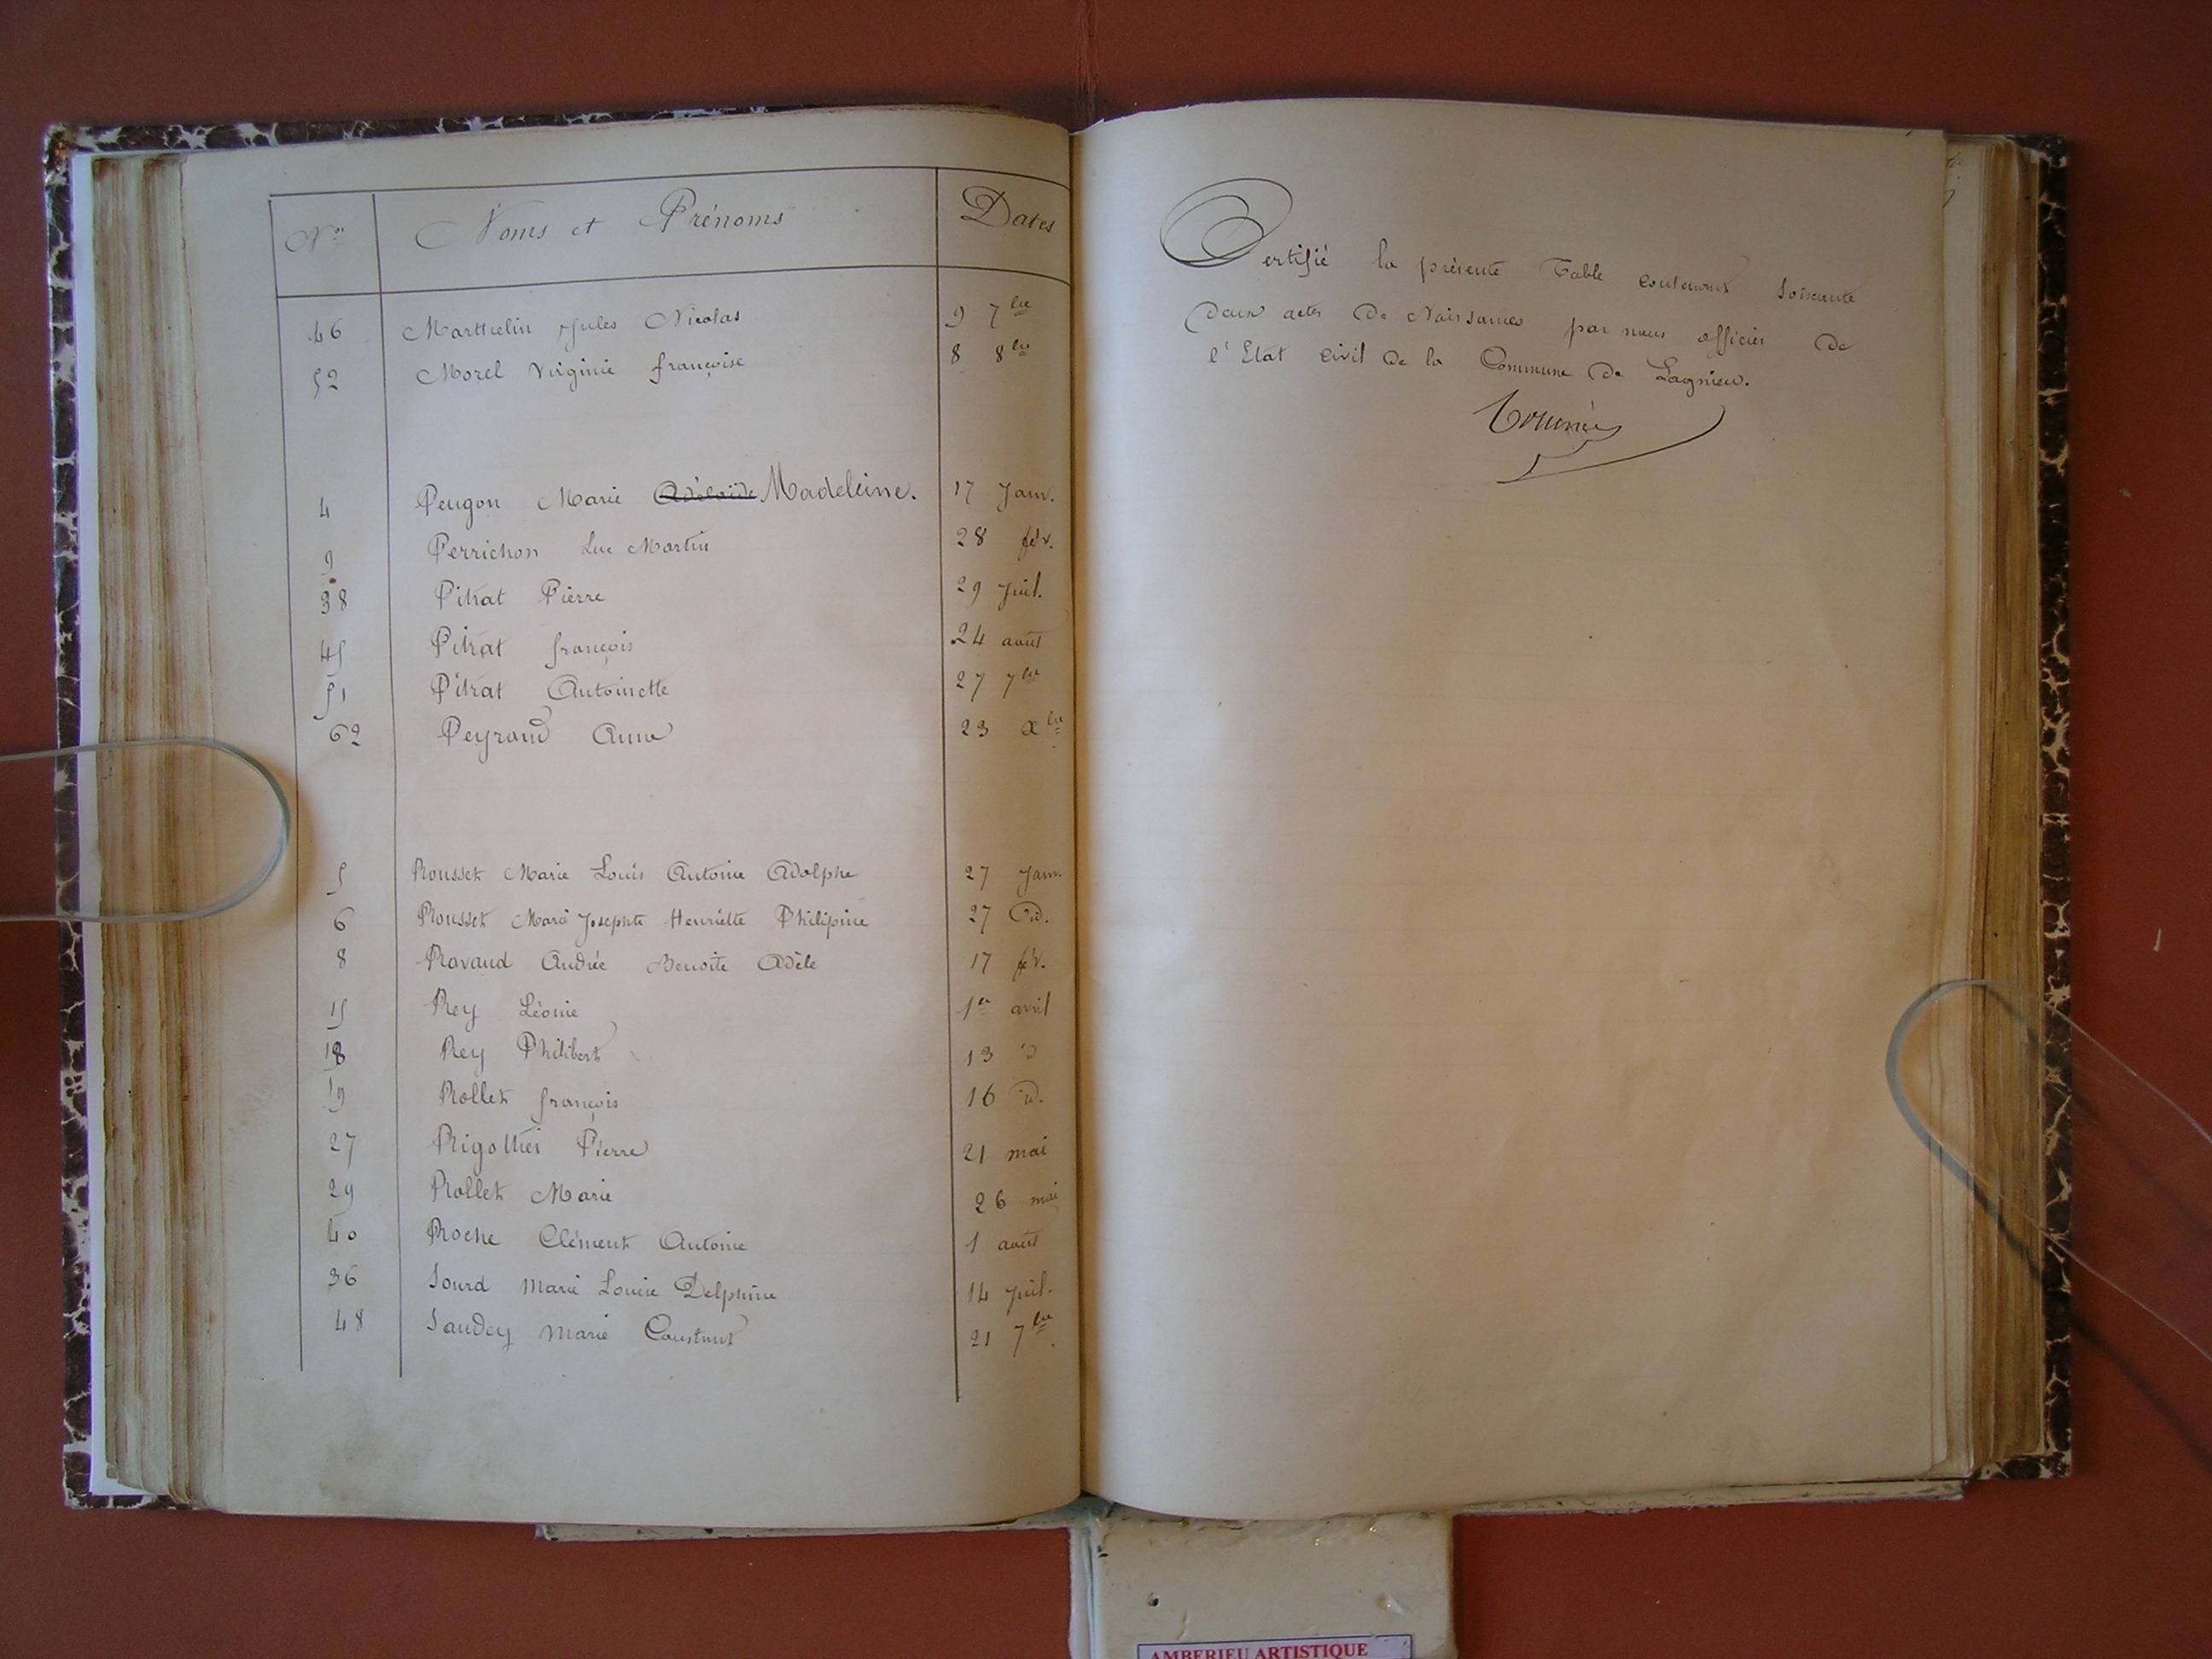 Nos Noms et Prénoms Dates
46 Marthelin Jules Nicolas 9 7bre
52 Morel Virginie françoise 8 8bre
4 Peugon Marie Adélaïde Madeleine. 17 Janv.
9 Perrichon Luc Martin 28 fév.
38 Pitrat Pierre 29 Juil.
45 Pitrat françois 24 aout
51 Pitrat Antoinette 27 7bre
62 Peyraud Anne 23 Xbre
5 Rousset Marie Louis Antoine Adolphe 27 Janv.
6 Rousset Marie Josephte Henriette Philipine 27 id.
8 Ravaud Andrée Benoite Adèle 17 fév.
15 Rey Léonie 1er avril
18 Rey Philibert 13 id
19 Rollet françois 16 id.
27 Rigottier Pierre 21 mai
29 Rollet Marie 26 mai
40 Roche Clément Antoine 1 aout
36 Sourd Marie Louise Delphine 14 Juil.
48 Saudey Marie 21 7bre
Certifié la présente Table contenant soixante
deux actes de Naissances par nous officier de
l'Etat civil de la Commune de Lagnieu.
AMBERIEU ARTISTIQUE